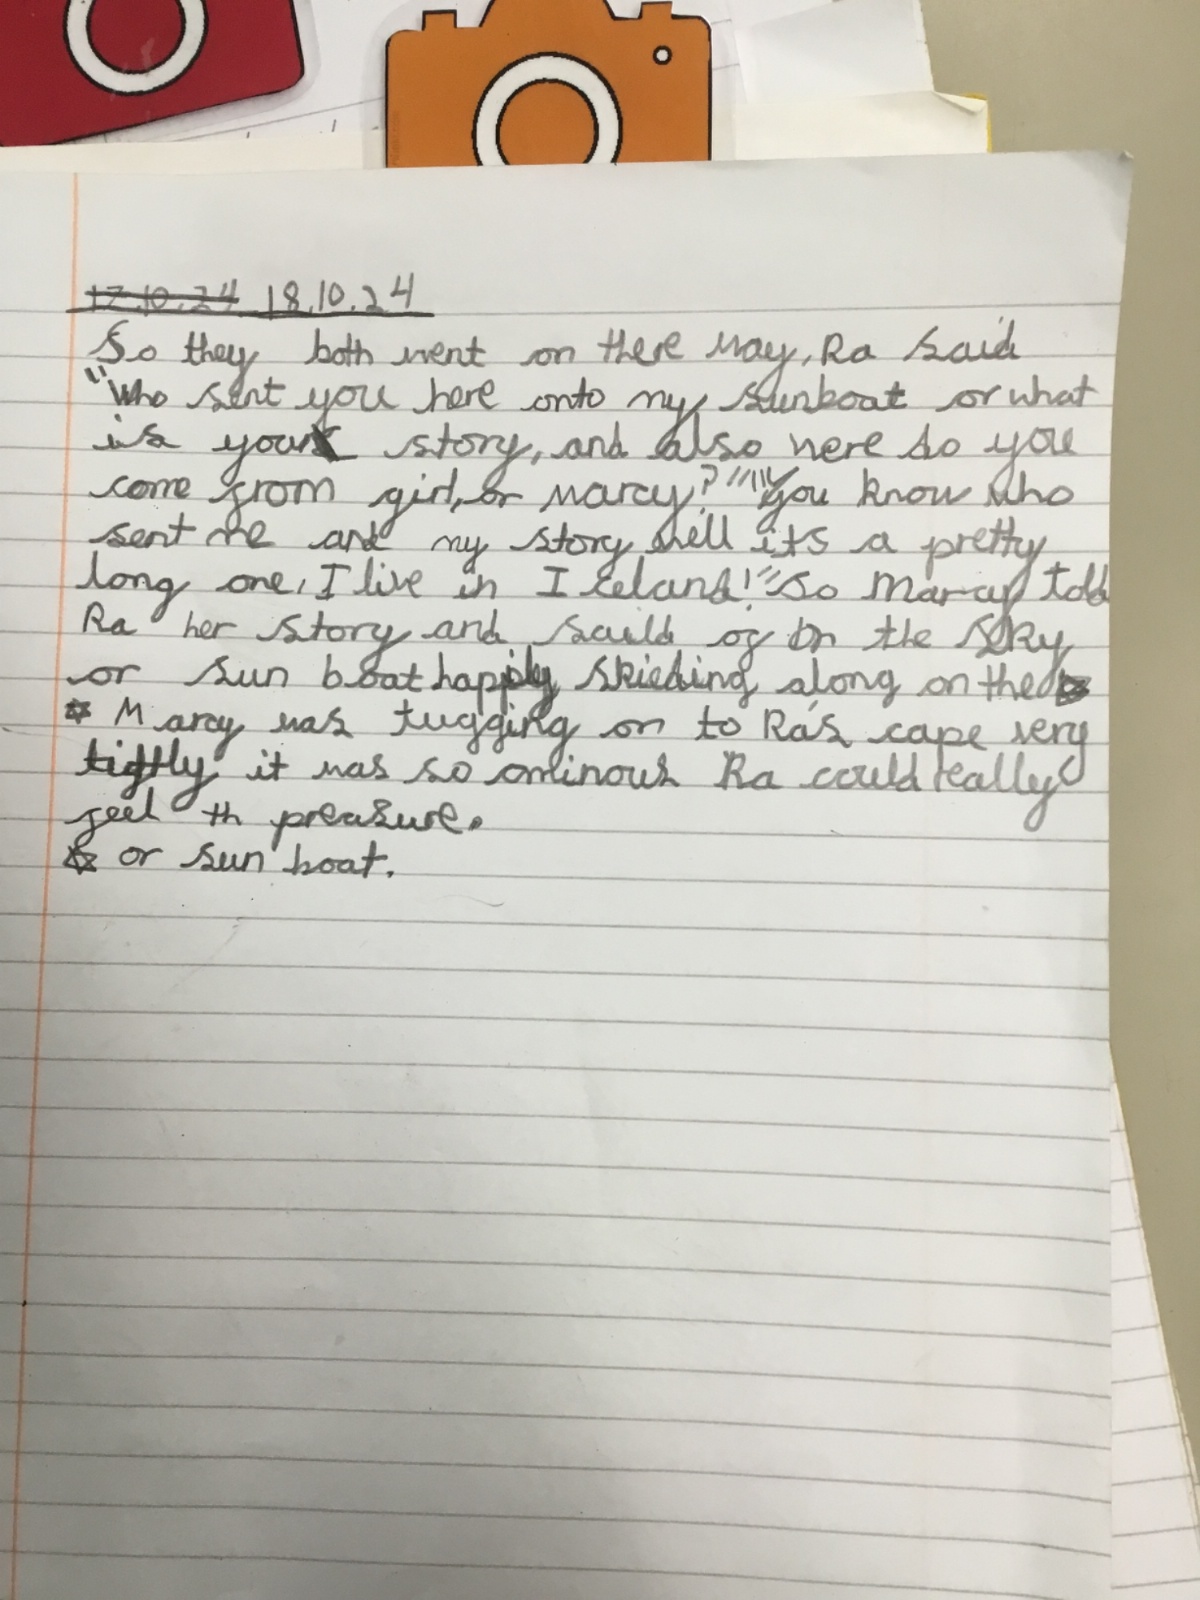 17.10.24 18.10.24
So they both went on there way, Ra said
"Who sent you here onto my sunboat or what
is your story, and also were do you
come from girl, or marcy?" "You know who
sent me and my story well its a pretty
long one, I live in Iceland!" So Marcy told
Ra her story and saild of on the sky
or sun boat happily skieding along on the
☆ Marcy was tugging on to Ra's cape very
tigtly it was so ominous Ra could really
feel th preasure.
☆ or sun boat.